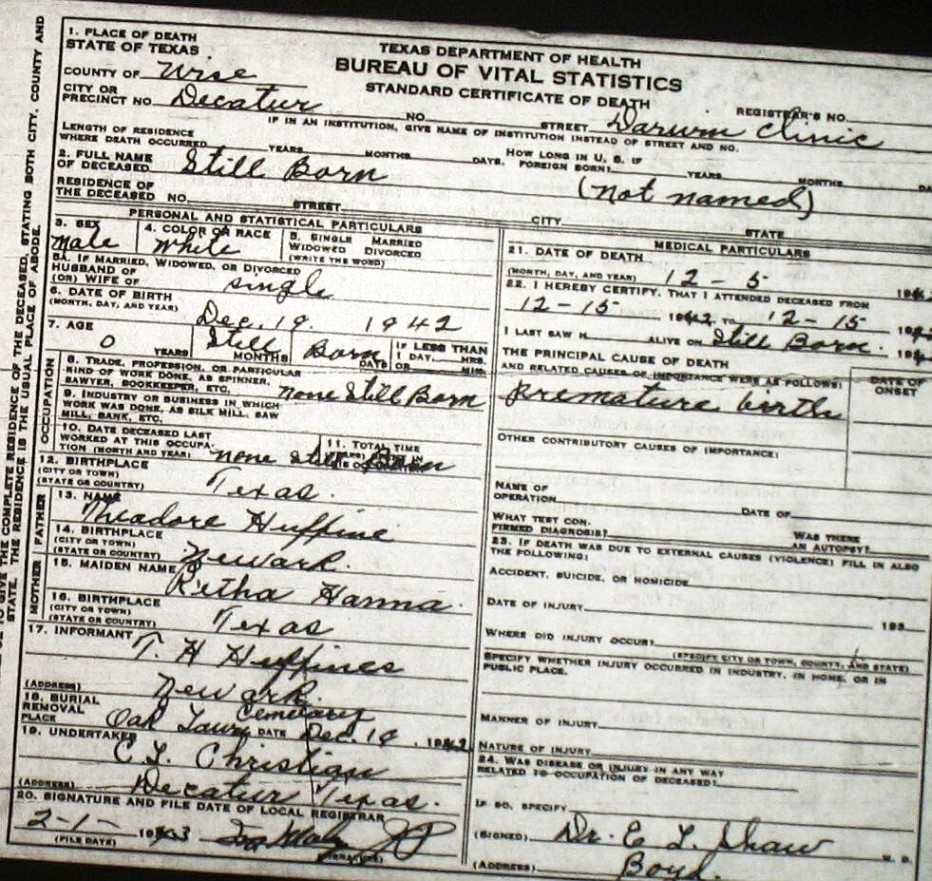 1. PLACE OF DEATH
STATE OF TEXAS
TEXAS DEPARTMENT OF HEALTH
BUREAU OF VITAL STATISTICS
STANDARD CERTIFICATE OF DEATH
COUNTY OF Wise
CITY OR
PRECINCT NO. Decatur NO. STREET Darwin Clinic REGISTRAR'S NO.
IF IN AN INSTITUTION, GIVE NAME OF INSTITUTION INSTEAD OF STREET AND NO.
LENGTH OF RESIDENCE
WHERE DEATH OCCURRED YEARS MONTHS DAYS. HOW LONG IN U. S. IF
FOREIGN BORN? YEARS MONTHS DA
2. FULL NAME
OF DECEASED Still Born (not named)
RESIDENCE OF
THE DECEASED NO. STREET CITY STATE
PERSONAL AND STATISTICAL PARTICULARS
3. SEX male
4. COLOR OR RACE white
5. SINGLE MARRIED
WIDOWED DIVORCED
(WRITE THE WORD)
5A. IF MARRIED, WIDOWED, OR DIVORCED
HUSBAND OF
(OR) WIFE OF single
6. DATE OF BIRTH
(MONTH, DAY, AND YEAR) Dec. 19. 1942
7. AGE
0 YEARS Still MONTHS Born DAYS IF LESS THAN
1 DAY HRS.
OR MIN.
OCCUPATION
8. TRADE, PROFESSION, OR PARTICULAR
KIND OF WORK DONE, AS SPINNER,
SAWYER, BOOKKEEPER, ETC.
9. INDUSTRY OR BUSINESS IN WHICH
WORK WAS DONE, AS SILK MILL, SAW
MILL, BANK, ETC. none Still Born
10. DATE DECEASED LAST
WORKED AT THIS OCCUPA-
TION (MONTH AND YEAR) none still Born
11. TOTAL TIME
12. BIRTHPLACE
(CITY OR TOWN)
(STATE OR COUNTRY) Texas.
FATHER
13. NAME
Theadore Huffine
14. BIRTHPLACE
(CITY OR TOWN)
(STATE OR COUNTRY) Newark.
MOTHER
15. MAIDEN NAME Retha Hanna.
16. BIRTHPLACE
(CITY OR TOWN)
(STATE OR COUNTRY) Texas
17. INFORMANT T. H Huffines
(ADDRESS) Newark.
18. BURIAL
REMOVAL
PLACE Oak Lawn Cemetary DATE Dec. 19
19. UNDERTAKER
C. L. Christian
(ADDRESS) Decatur Texas.
20. SIGNATURE AND FILE DATE OF LOCAL REGISTRAR
2-1-
(FILE DATE) (SIGNATURE)
MEDICAL PARTICULARS
21. DATE OF DEATH
(MONTH, DAY, AND YEAR) 12 - 5
22. I HEREBY CERTIFY, THAT I ATTENDED DECEASED FROM
12-15 TO 12-15
I LAST SAW H ALIVE ON Still Born.
THE PRINCIPAL CAUSE OF DEATH
AND RELATED CAUSES OF IMPORTANCE WERE AS FOLLOWS:
DATE OF
ONSET
Premature birth
OTHER CONTRIBUTORY CAUSES OF IMPORTANCE:
NAME OF
OPERATION DATE OF
WHAT TEST CON-
FIRMED DIAGNOSIS? WAS THERE
AN AUTOPSY?
23. IF DEATH WAS DUE TO EXTERNAL CAUSES (VIOLENCE) FILL IN ALSO
THE FOLLOWING:
ACCIDENT, SUICIDE, OR HOMICIDE
DATE OF INJURY 193
WHERE DID INJURY OCCUR?
(SPECIFY CITY OR TOWN, COUNTY, AND STATE)
SPECIFY WHETHER INJURY OCCURRED IN INDUSTRY, IN HOME, OR IN
PUBLIC PLACE.
MANNER OF INJURY
NATURE OF INJURY
24. WAS DISEASE OR INJURY IN ANY WAY
RELATED TO OCCUPATION OF DECEASED?
IF SO, SPECIFY
(SIGNED) Dr. E L Shaw M. D.
(ADDRESS) Boyd.
GIVE THE COMPLETE RESIDENCE OF THE DECEASED, STATING BOTH CITY, COUNTY AND
STATE. THE RESIDENCE IS THE USUAL PLACE OF ABODE.